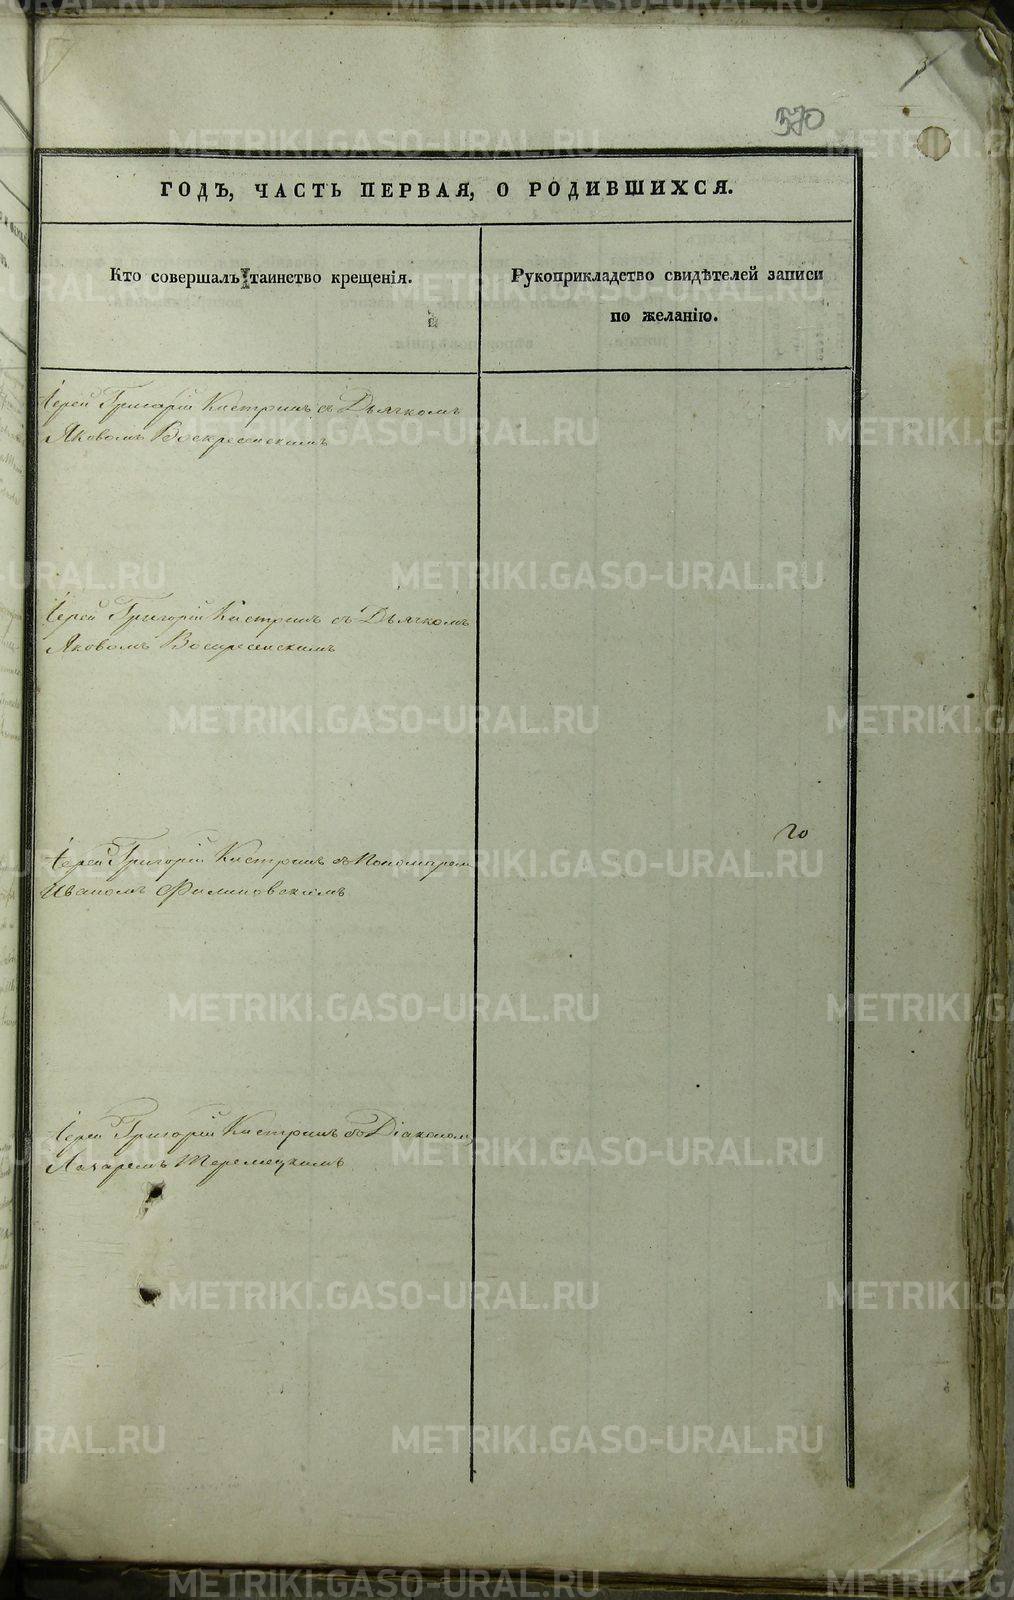 3
570
ГОДЪ, ЧАСТЬ ПЕРВАЯ, О РОДИВШИХСЯ.
Кто совершалъ таинство крещенія.
Рукоприкладство свидѣтелей записи
по желанію.
Іерей Григорій Кастринъ съ Дьячкомъ
Яковомъ Воскресенскимъ
Іерей Григорій Кастринъ съ Дьячкомъ
Яковомъ Воскресенскимъ
Іерей Григорій Кастринъ съ Пономарем
Иваномъ Филиповскимъ
Іерей Григорій Кастринъ со Діаконом
Лазаремъ Теремецкимъ
го
METRIKI.GASO-URAL.RU